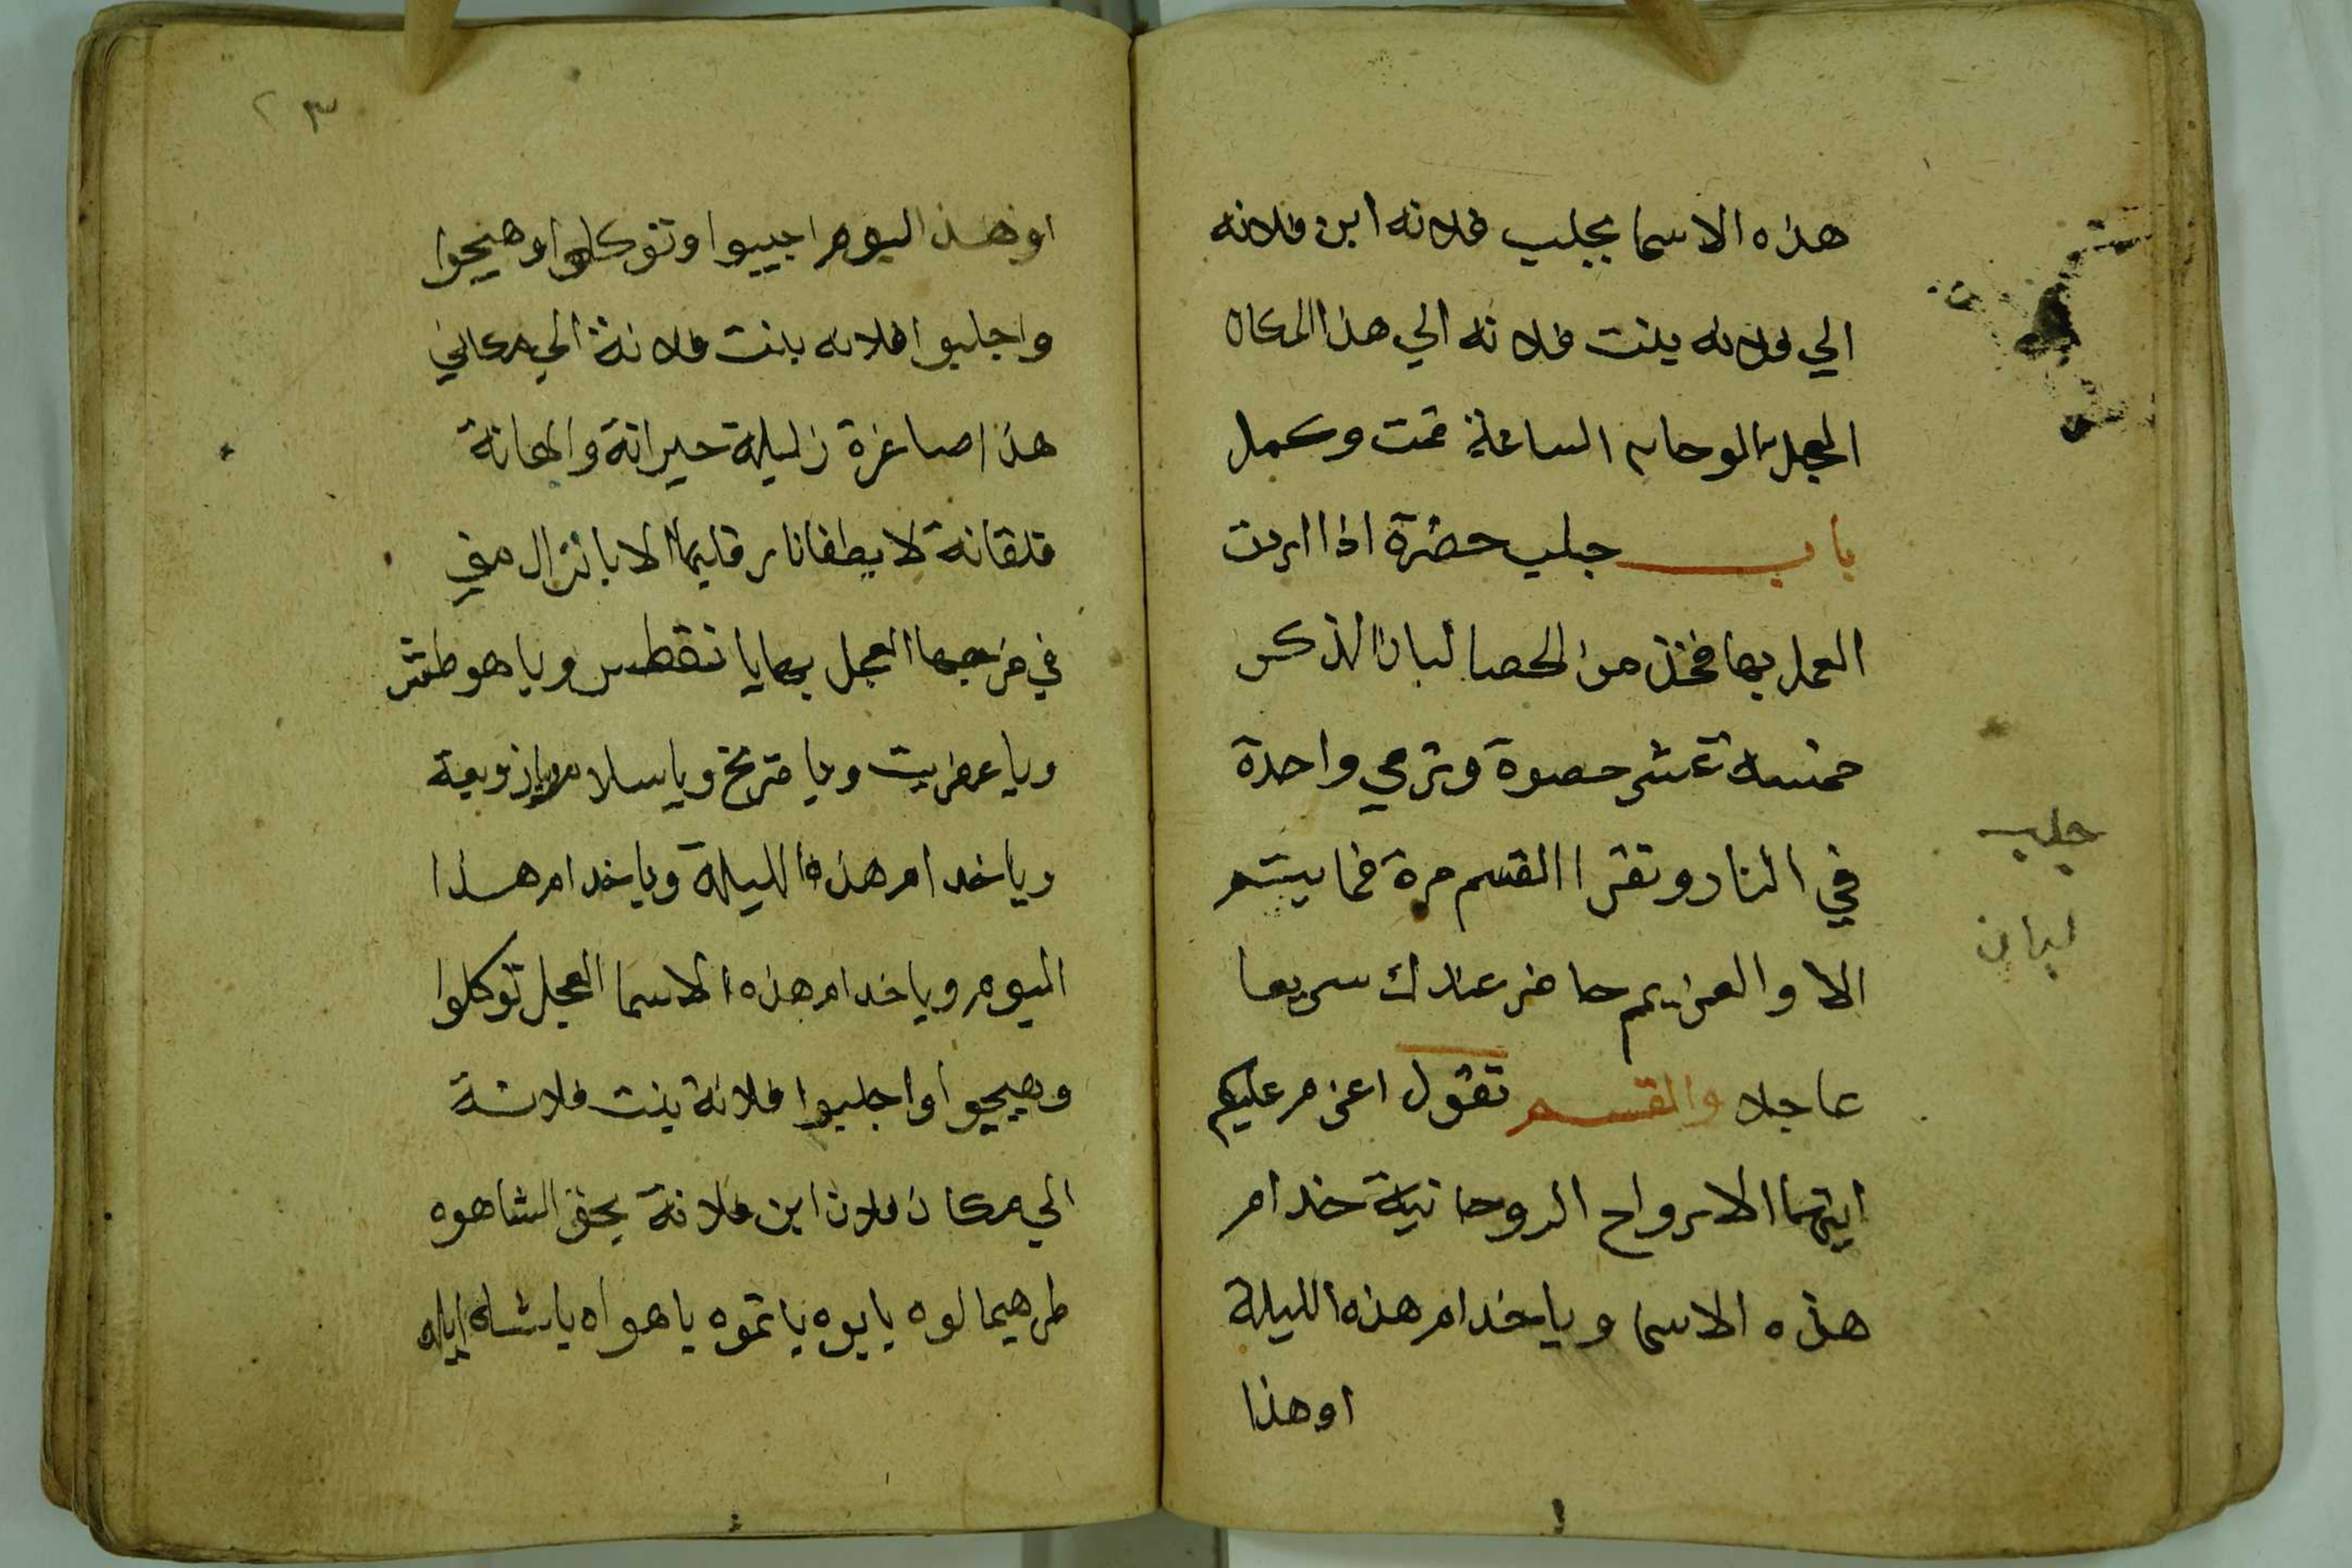 هذه الاسما بجلب فلانه ابن فلانه
الي فلانه بنت فلانه الي هذا المكان
العجل الوحا الساعة تمت وكمل
باب جلب حضرة اذا اردت
العمل بها فخذ من الحصا لبان الذكر
خمسة عشر حصوة وترمي واحدة
في النار وتقرا القسم مرة فما يتم
الا والعزيم حاضر عندك سريعا
عاجلا والقسم تقول اعزم عليكم
ايتها الارواح الروحانية خدام
هذه الاسما ويا خدام هذه الليلة
او هذا
جلب
لبان
٢٣
او هذا اليوم اجيبوا وتوكلوا وهيجوا
واجلبوا فلانه بنت فلانة الي مكاني
هذا صاغرة زليلة حيرانة والهانة
قلقانة لا يطفا نار قلبها الا بانزال مني
في فرجها العجل بها يا نقطس ويا هوطش
ويا عفريت ويا مريخ ويا سلام ويا زوبعة
ويا خدام هذه الليلة ويا خدام هذا
اليوم ويا خدام هذه الاسما العجل توكلوا
وهيجوا واجلبوا فلانة بنت فلانة
الي مكان فلان ابن فلانة بحق الشاهوه
طرهيما لوه يا يوه يا تموه يا هواه يا شاه ايله